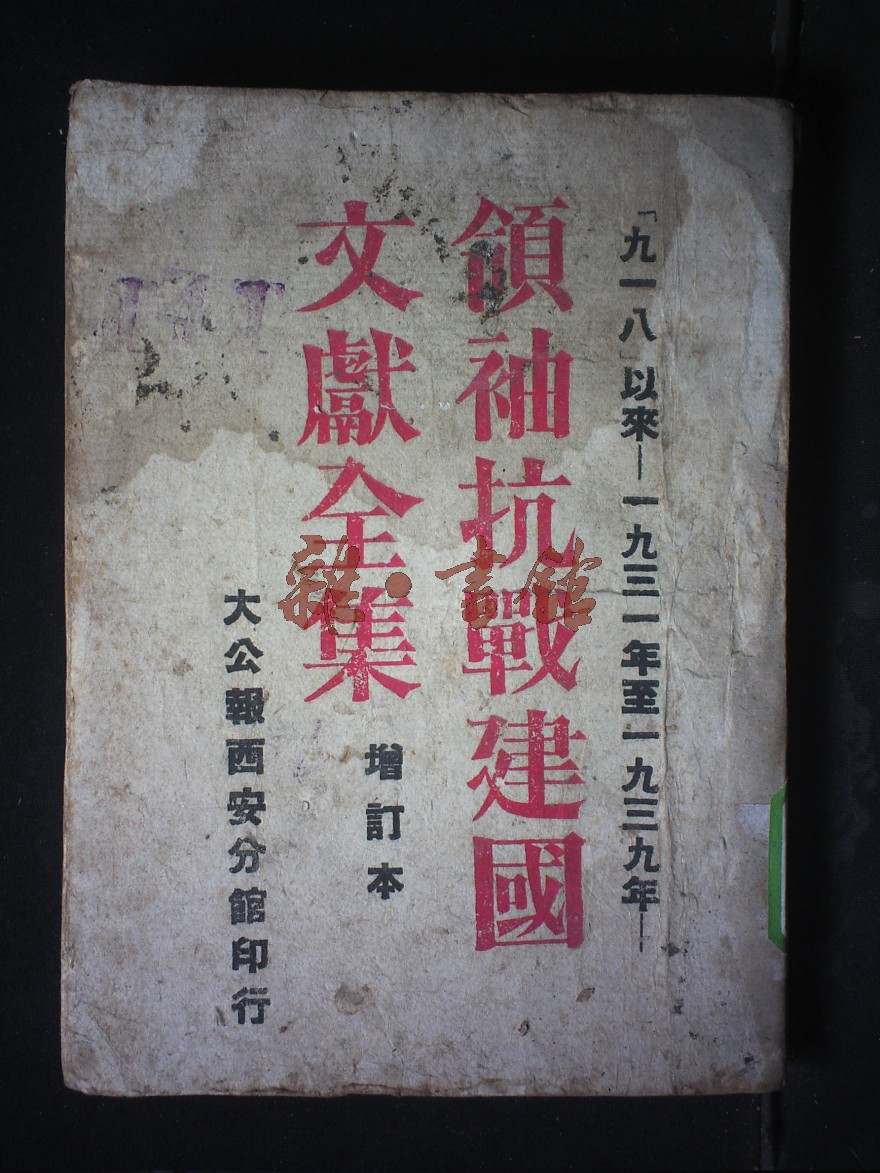 「九一八」以來—一九三一年至一九三九年—
領袖抗戰建國
文獻全集
增訂本
大公報西安分館印行
雜·書館